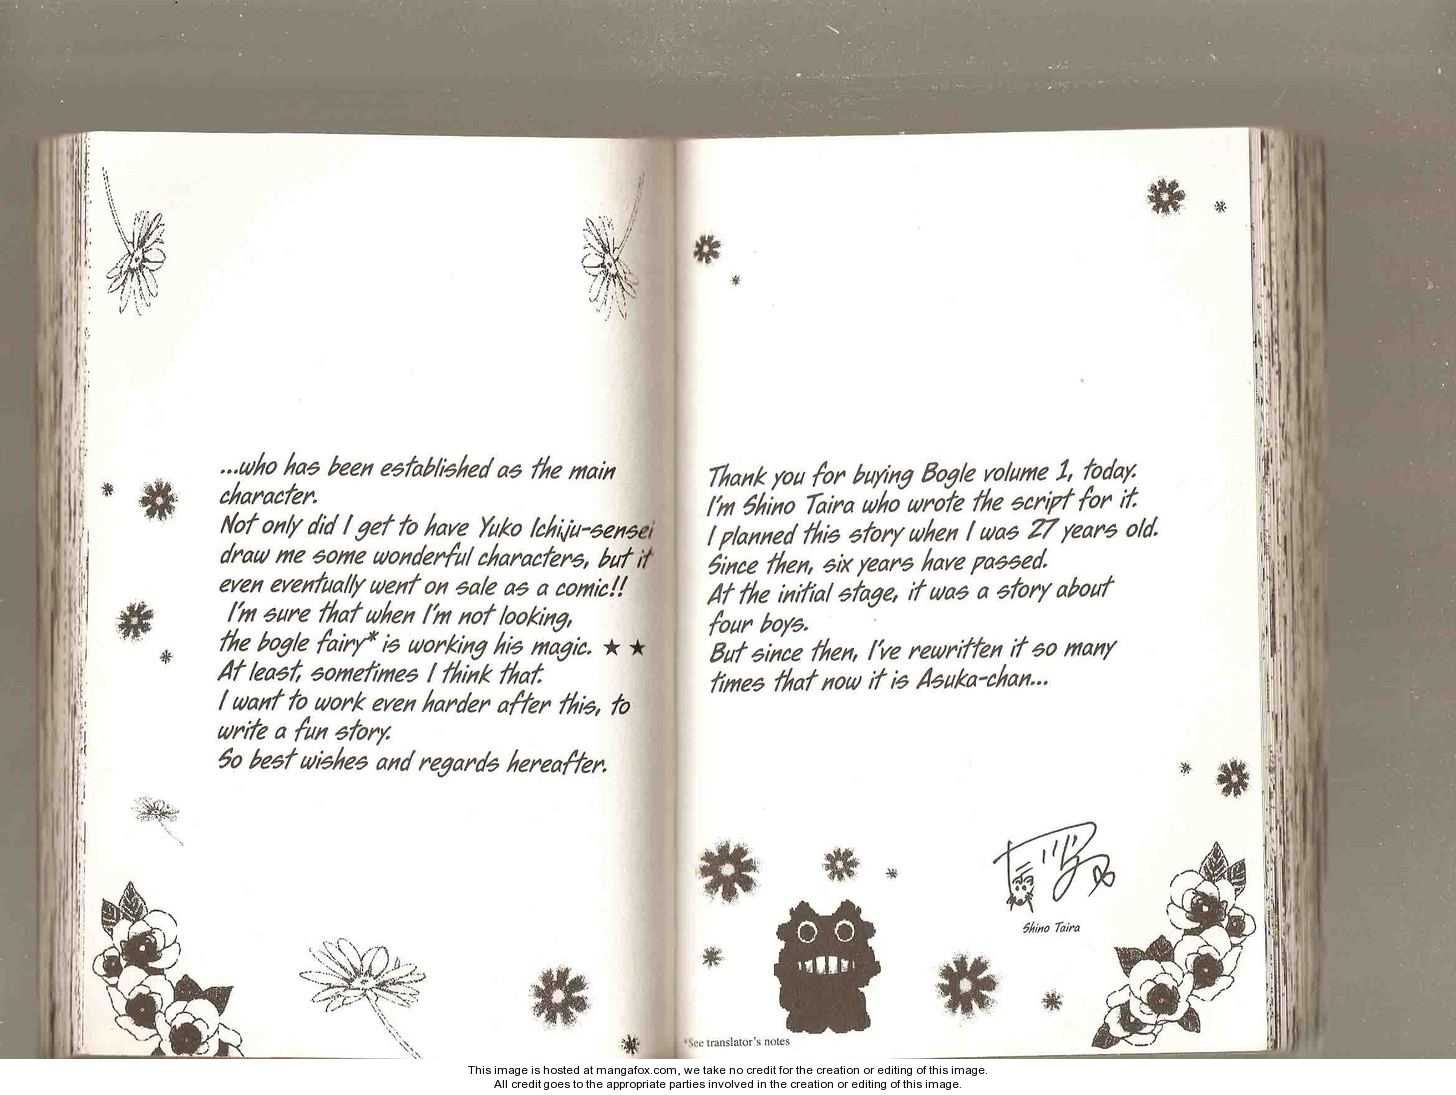 Thank you for buying Bogle volume 1, today.
I'm Shino Taira who wrote the script for it.
I planned this story when I was 27 years old.
Since then, six years have passed.
At the initial stage, it was a story about
four boys.
But since then, I've rewritten it so many
times that now it is Asuka-chan...
Shino Taira
*See translator's notes
...who has been established as the main
character.
Not only did I get to have Yuko Ichiju-sensei
draw me some wonderful characters, but it
even eventually went on sale as a comic!!
I'm sure that when I'm not looking,
the bogle fairy* is working his magic. ★ ★
At least, sometimes I think that.
I want to work even harder after this, to
write a fun story.
So best wishes and regards hereafter.
This image is hosted at mangafox.com, we take no credit for the creation or editing of this image.
All credit goes to the appropriate parties involved in the creation or editing of this image.